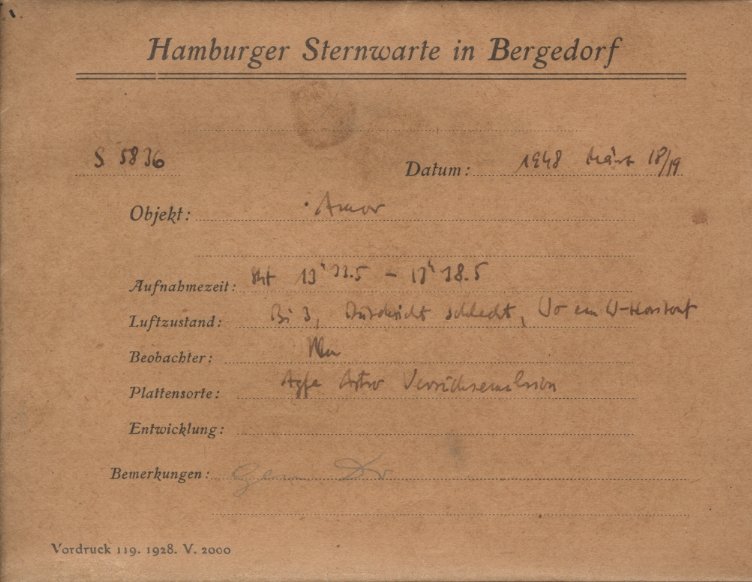 Hamburger Sternwarte in Bergedorf
S 5836 Datum: 1948 März 18/19
Objekt: Amor
Aufnahmezeit: 13h 33.5 –
Luftzustand: Bi 3, Durchsicht schlecht,
Beobachter:
Plattensorte: Agfa Astro Versuchsemulsion
Entwicklung:
Bemerkungen:
Vordruck 119. 1928. V. 2000